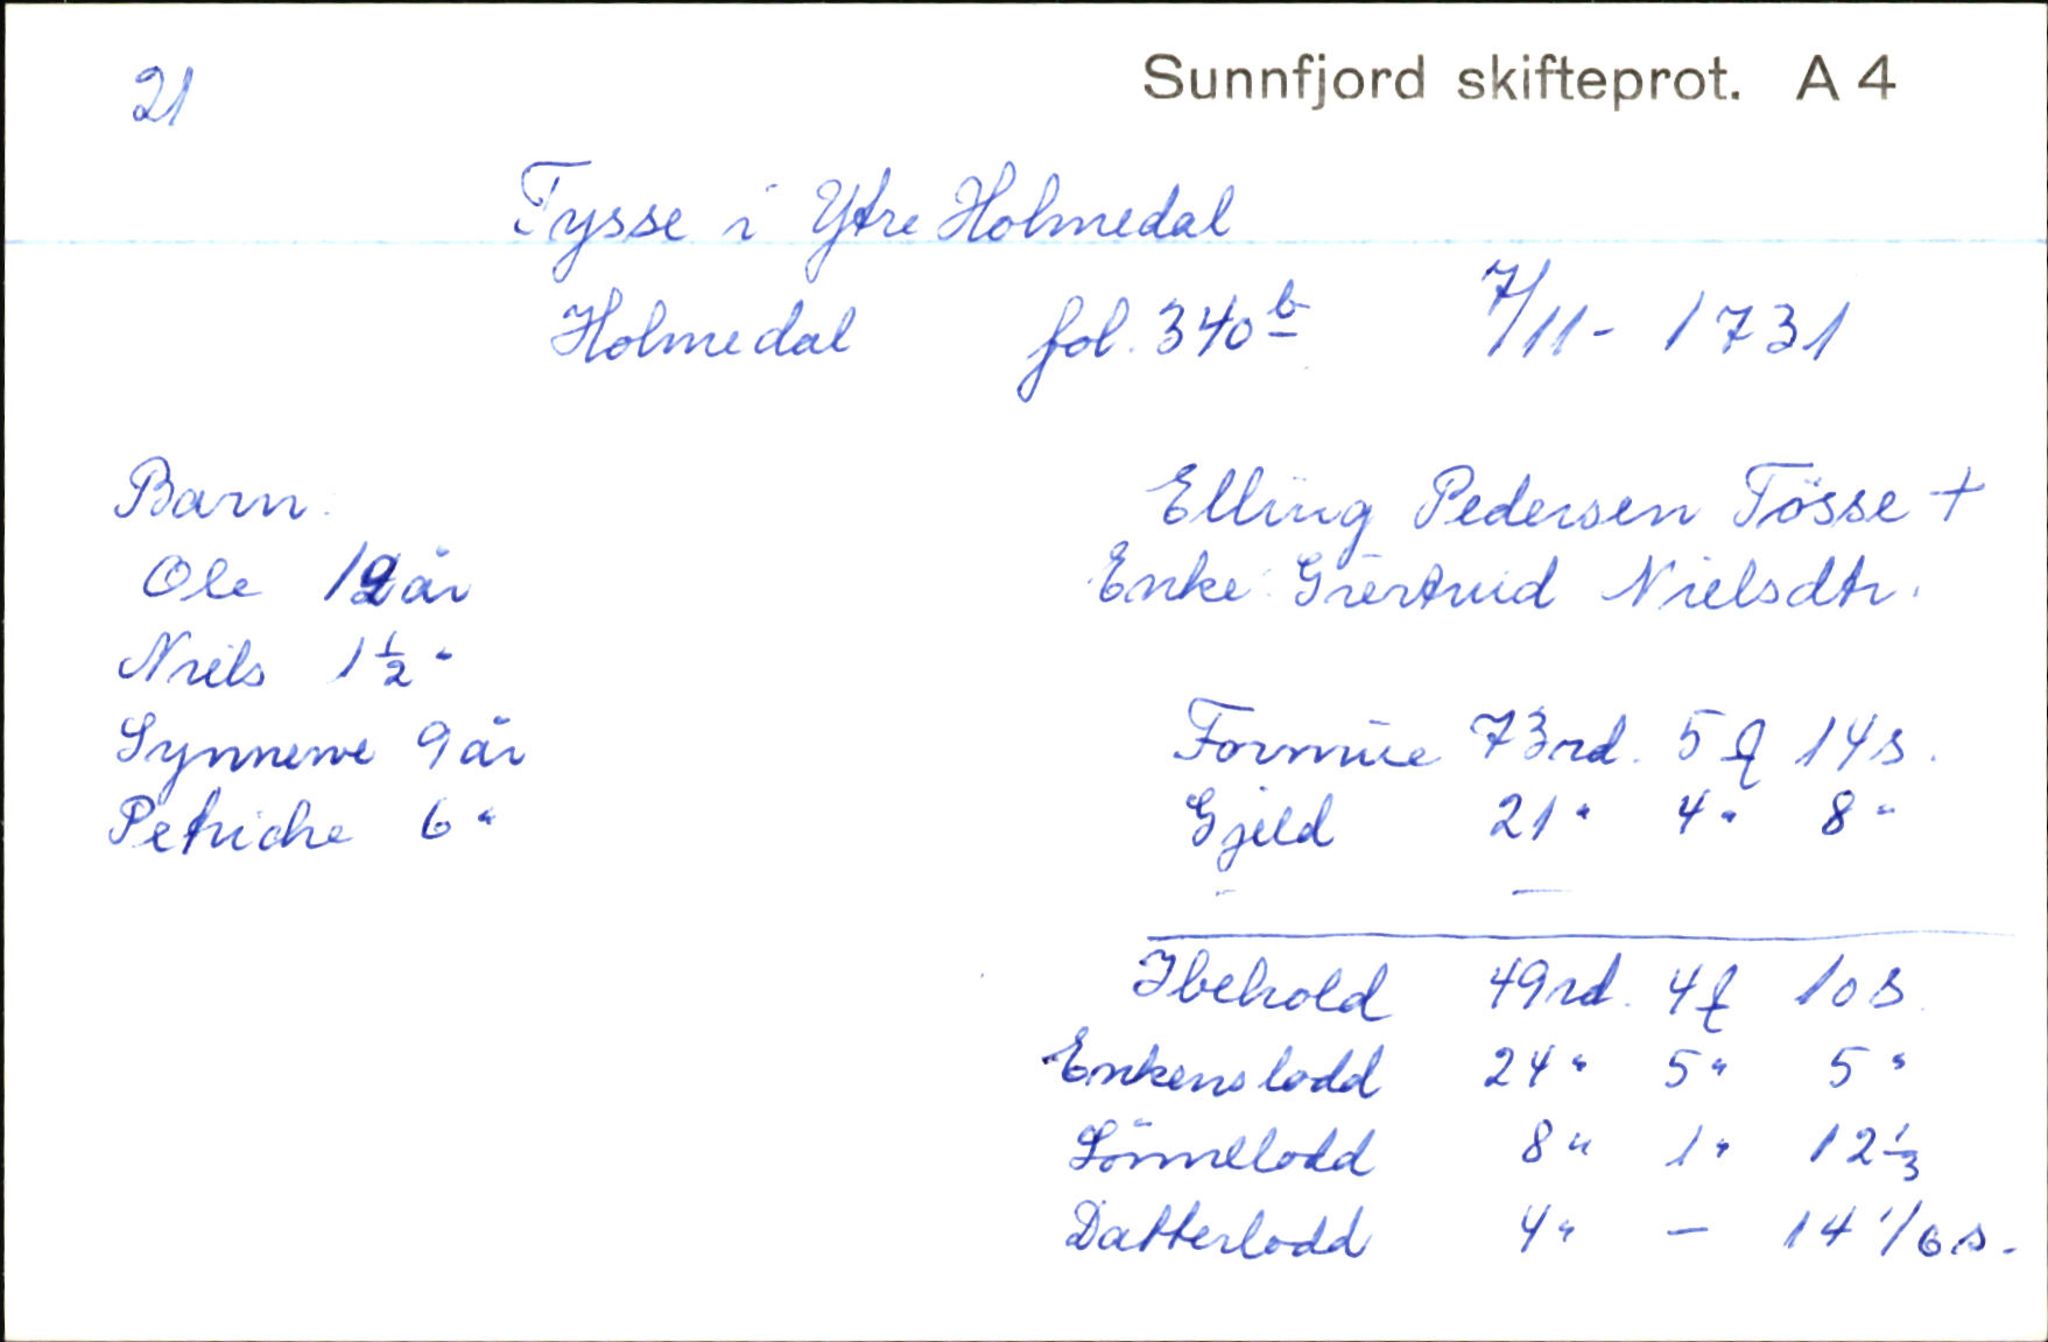 21
Sunnfjord skifteprot. A 4
Tysse i Ytre Holmedal
Holmedal fol. 340 b 7/11 - 1731
Barn:
Ole 12 år
Niels 1 1/2 "
Synneve 9 år
Petriche 6 "
Elling Pedersen Tösse +
Enke: Giertrud Nielsdtr.
Formue 73 rd. 5 ƒ 14 s.
Gjeld 21 " 4 " 8 "
Ibehold 49 rd. 4 ƒ 10 s.
Enkens lodd 24 " 5 " 5 "
Sönnelodd 8 " 1 " 12 1/3
Datterlodd 4 " — 14 1/6 s.